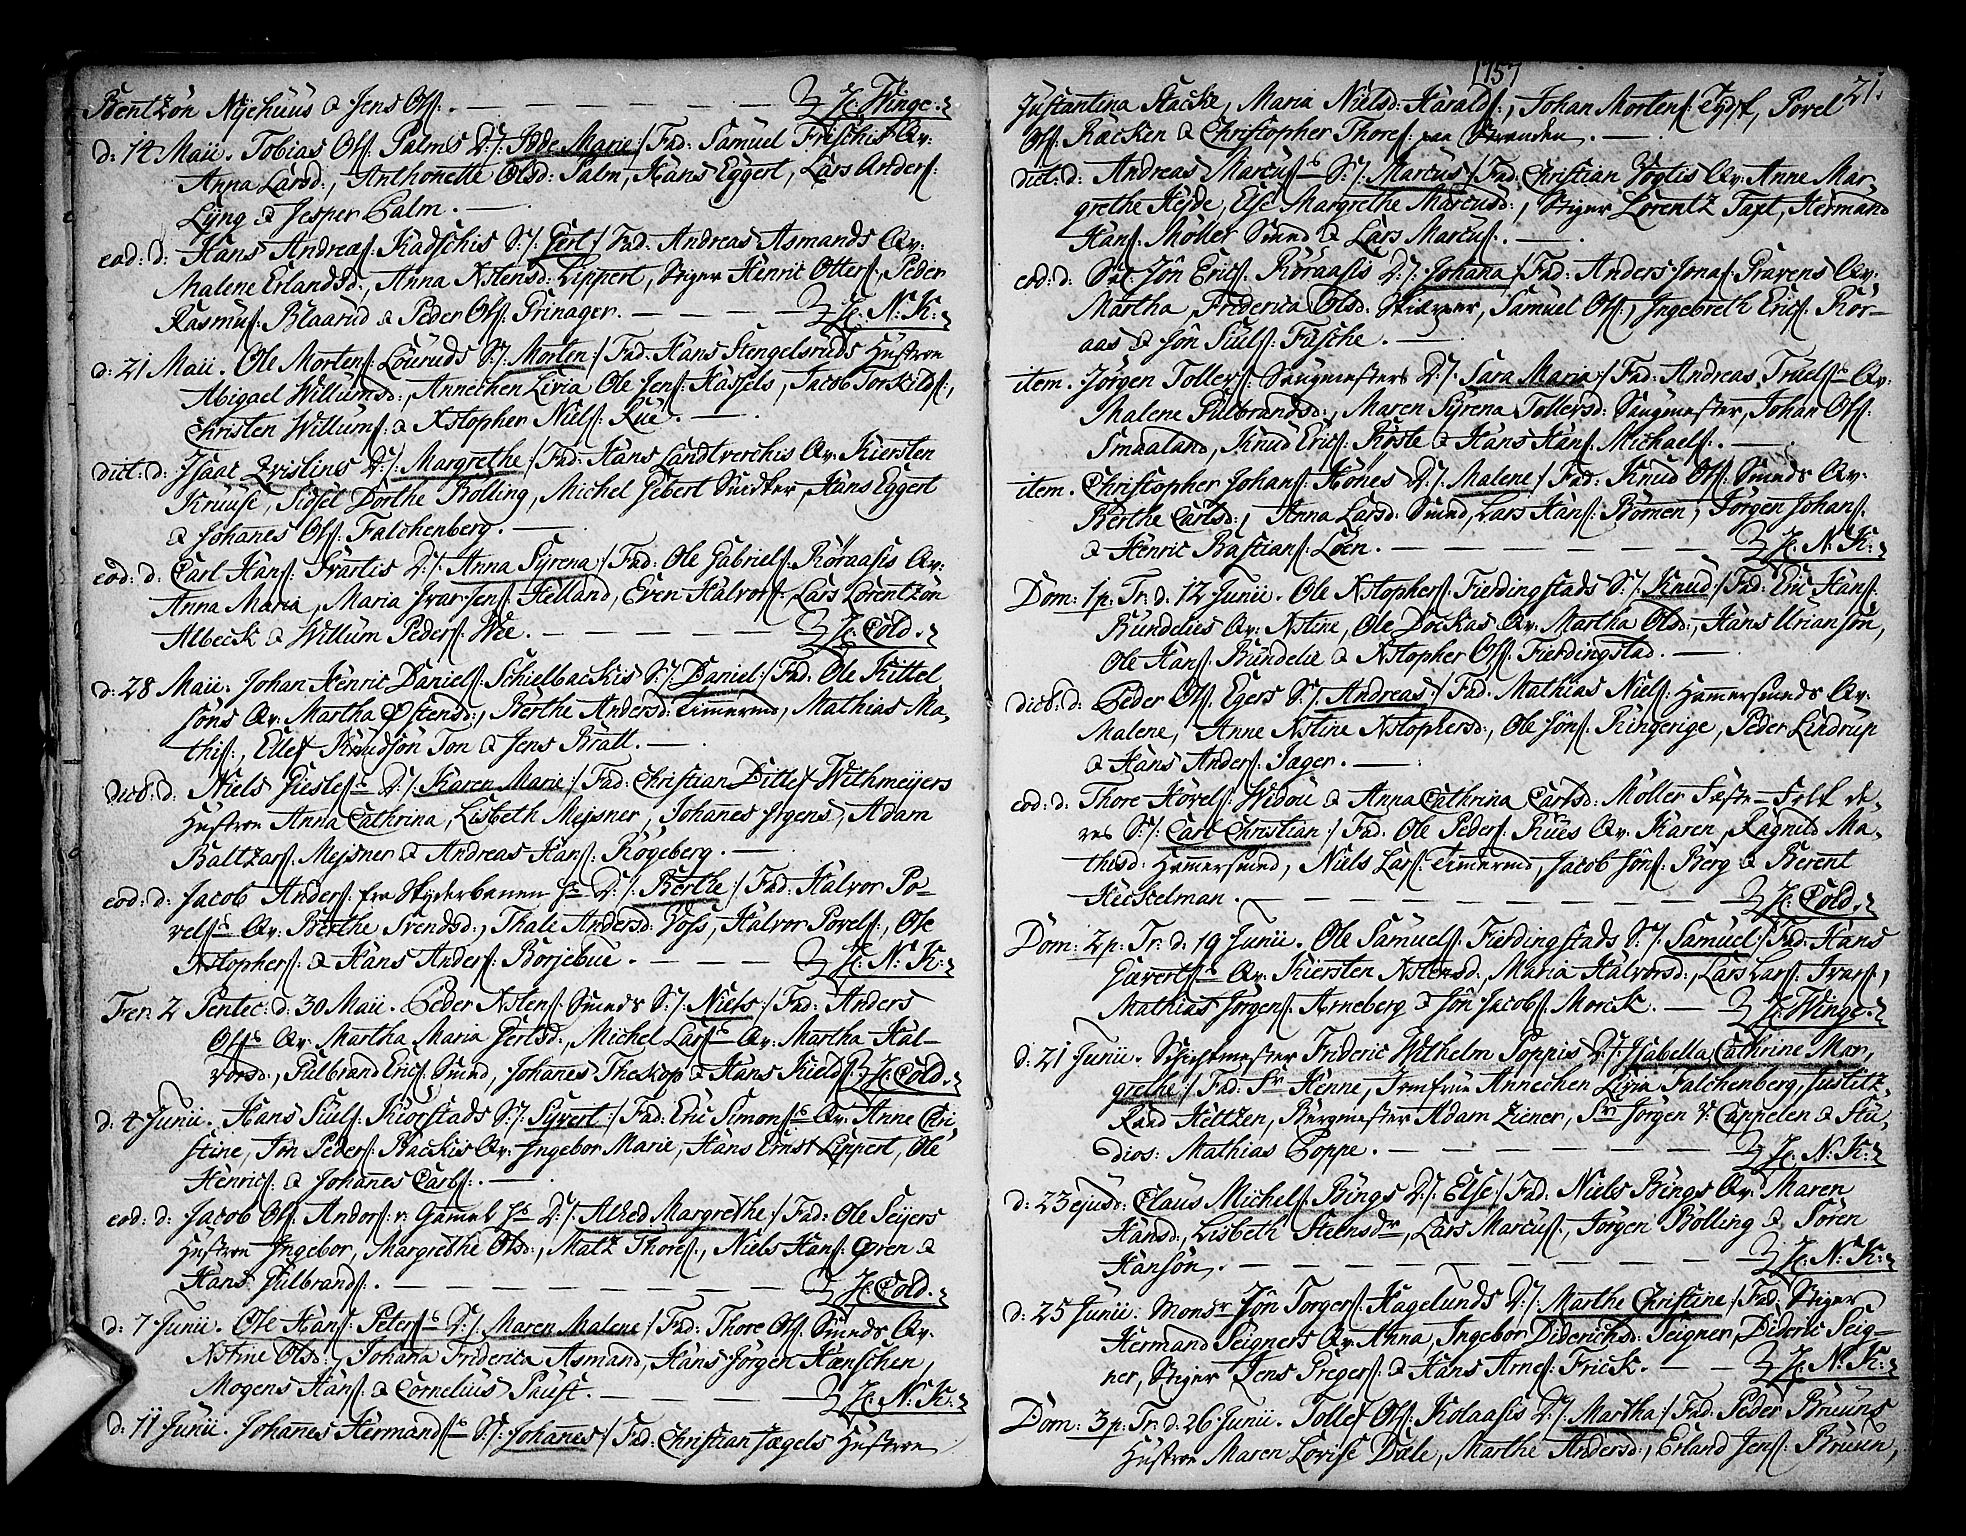 Bentzön Nyehuus & Jens Ols: — — — — — H: Winge.
d: 14 Maii. Tobias Ols: Palms D:/: Sæde Marie:/ Fad: Samuel Frischis Qv:
Anna Larsd:, Anthonette Olsd: Palm, Hans Eggert, Lars Anders:
Lyng & Jesper Palm. —
eod: d: Hans Andreas: Kadschis S:/: Gert/ Fad: Andreas Asmands Qv:
Malene Erlandsd:, Anna Xstensd: Lippert, Stiger Henric Otters:, Peder
Rasmus: Blaarud & Peder Ols: Prinager. — — — — H: N: K:
d: 21 Maii. Ole Mortens: Louruds S:/: Morten:/ Fad: Hans Stengelsruds Hustroe
Abigael Willumsd:, Annechen Livia Ole Jens: Hassels, Jacob Torkilds:,
Christen Willums: & Xstopher Niels: Lue. —
dict: d: Isaac Zvislines D:/: Margrethe:/ Fad: Hans Landtverchis Qv: Kiersten
Kruuse, Sidsel Dorthe Bolling, Michel Gebert Snidker, Hans Eggert
& Johanes Ols: Falchenberg. —
eod: d: Carl Hans: Svartis D:/: Anna Syrena:/ Fad: Ole Gabriels: Röraasis Qv:
Anna Maria, Maria Ivar Jens: Helland, Even Halvors:, Lars Lorentzön
Albeck & Willum Peders: Wee. — — — — — H: Cold.
d: 28 Maii. Johan Henric Daniels: Schielbackis S:/: Daniel:/ Fad: Ole Kittel
söns Qv: Martha Östensd:, Berthe Andersd: Timermd, Mathias Ma-
this:, Ellef Knudsön Ton & Jens Bratt. —
dict: d: Niels Giesles D:/: Karen Marie:/ Fad: Christian Ditlef Withmeijers
Hustroe Anna Cathrina, Lisbeth Mejsner, Johannes Jrgens:, Adam
Baltzars: Mejsner & Andreas Hans: Rögeberg. —
eod: d: Jacob Anders: fra Skyderbanen D:/: Berthe:/ Fad: Halvor Po-
vels: Qv: Berthe Svendsd:, Thale Andersd: Voss, Halvor Povels:, Ole
Xstophers: & Hans Anders: Borjebue. — — — — H: N: K:
Fer: 2 Pentec: d: 30 Maii. Peder Xstens: Smeds S:/: Niels:/ Fad: Anders
Ols: Qv: Martha Maria Gertsd:, Michel Lars: Qv: Martha Hal-
vorsd:, Gulbrand Erics: Smed, Johanes Theskop & Hans Kield: H: Cold.
d: 4 Junii. Hans Siuls: Kiorstads S:/: Syvert:/ Fad: Eric Simons: Qv: Anne Chri
stine, Jon Peders: Backis Qv: Ingebor Marie, Hans Ernst Lippert, Ole
Henrics: & Johanes Carls:. —
eod: d: Jacob Ols: Anders: v: Gamel D:/: Alhed Margrethe:/ Fad: Ole Seijers
Hustroe Ingebor, Margrethe Olsd:, Matz Thores:, Niels Hans: Gren &
Hans Gulbrands:. — — — — — — — — H: Cold.
d: 7 Junii. Ole Hans: Peters: D:/: Maren Malene/ Fad: Thore Ols: Smeds Qv:
Xstine Olsd:, Johana Friderica Asmand, Hans Jörgen Hænschen,
Mogens Hans: & Cornelius Paust. — — — — H: N: K:
d: 11 Junii. Johannes Hermands: S:/: Johanes:/ Fad: Christian Jægels Hustroe
1757
21.
Justantina Stacke, Maria Nielsd: Haralds:, Johan Mortens: Tydsk, Povel
Ols: Racken & Christopher Thores: paa Stranden. —
dict: d: Andreas Marcus: S:/: Marcus:/ Fad: Christian Vogtis Qv: Anne Mar-
grethe Hejde, Else Margrethe Marcusd:, Stiger Lorentz Taxt, Hermand
Hans: Möller Smed & Lars Marcus:. —
eod: d: Sal: Jön Erics: Röraasis D:/: Johana:/ Fad: Anders Jonas: Pravens Qv:
Martha, Friderica Olsd: Skierper, Samuel Ols:, Ingebreth Erics: Rör-
aas & Jön Siuls: Fusche. —
item. Jörgen Tollers: Sangmesters D:/: Sara Maria:/ Fad: Andreas Truels: Qv:
Malene Gulbrandsd:, Maren Syrena Tollersd: Sangmester, Johan Ols:
Smaaland, Knud Erics: Röste & Hans Hans: Michaels:. —
item. Christopher Johans: Hönes D:/: Malene:/ Fad: Knud Ols: Smeds Qv:
Berthe Carlsd:, Anna Larsd: Smed, Lars Hans: Bömen, Jörgen Johans:
& Henric Bastians: Loen. — — — — — — — H: N: K:
Dom: 1 p: Tr: d: 12 Junii. Ole Xstophers: Fierdingstads S:/: Knud:/ Fad: Eric Hans:
Bundelies Qv: Xstine, Ole Dockas Qv: Martha Olsd:, Hans Uriansön,
Ole Hans: Bundelie & Xstopher Ols: Fierdingstad. —
dict: d: Peder Ols: Egers S:/: Andreas:/ Fad: Mathias Niels: Hamersmeds Qv:
Malene, Anne Xstine Xstophersd:, Ole Jöns: Ringerige, Peder Lindrup
& Hans Anders: Jæger. —
eod: d: Thore Hövels: Widou & Anna Cathrina Carlsd: Möller Fæste-Folk de-
res S:/: Carl Christian:/ Fad: Ole Peders: Rues Qv: Karen, Ragnild Ma-
thisd: Hamersmed, Niels Lars: Timermd, Jacob Jöns: Berg & Berent
Heckelman. — — — — — — — — — — H: Cold.
Dom: 2 p: Tr: d: 19 Junii. Ole Samuels: Fierdingstads S:/: Samuel:/ Fad: Hans
Gæverts: Qv: Kiersten Xstensd:, Maria Halvorsd:, Lars Lars: Ivars:,
Mathias Jörgens: Arneberg & Jön Jacobs: Morck. — H: Winge.
d: 21 Junii. Schichtmester Frideric Wilhelm Poppis D:/: Isabella Cathrine Mar,
grethe:/ Fad: Sr Henne, Jomfrue Annechen Livia Falchenberg, Justitz
Raad Heltzen, Bergmester Adam Ziener, Sr Jörgen v: Cappelen & Stu-
dios: Mathias Poppe. — — — — — — — H: N: K:
d: 23 ejusd: Claus Michels: Bings D:/: Else:/ Fad: Niels Bings Qv: Maren
Hansd:, Lisbeth Steensdr, Lars Marcus:, Jörgen Bölling & Sören
Hansön. — — — — — — — — — — H: N: K:
d: 25 Junii. Monsr Jön Torgers: Hagelunds D:/: Marthe Christine:/ Fad: Stiger
Hermand Seigners Qv: Anna, Ingebor Diderichsd: Seigner, Dideric Seig-
ner, Stiger Jens Gregers: & Hans Arnes: Frick. — — H: N: K:
Dom: 3 p: Tr: d: 26 Junii. Tollef Ols: Kolaasis D:/: Martha:/ Fad: Peder Bruuns
Hustroe Maren Lovise Dæle, Marthe Andersd:, Erland Jens: Bruun,